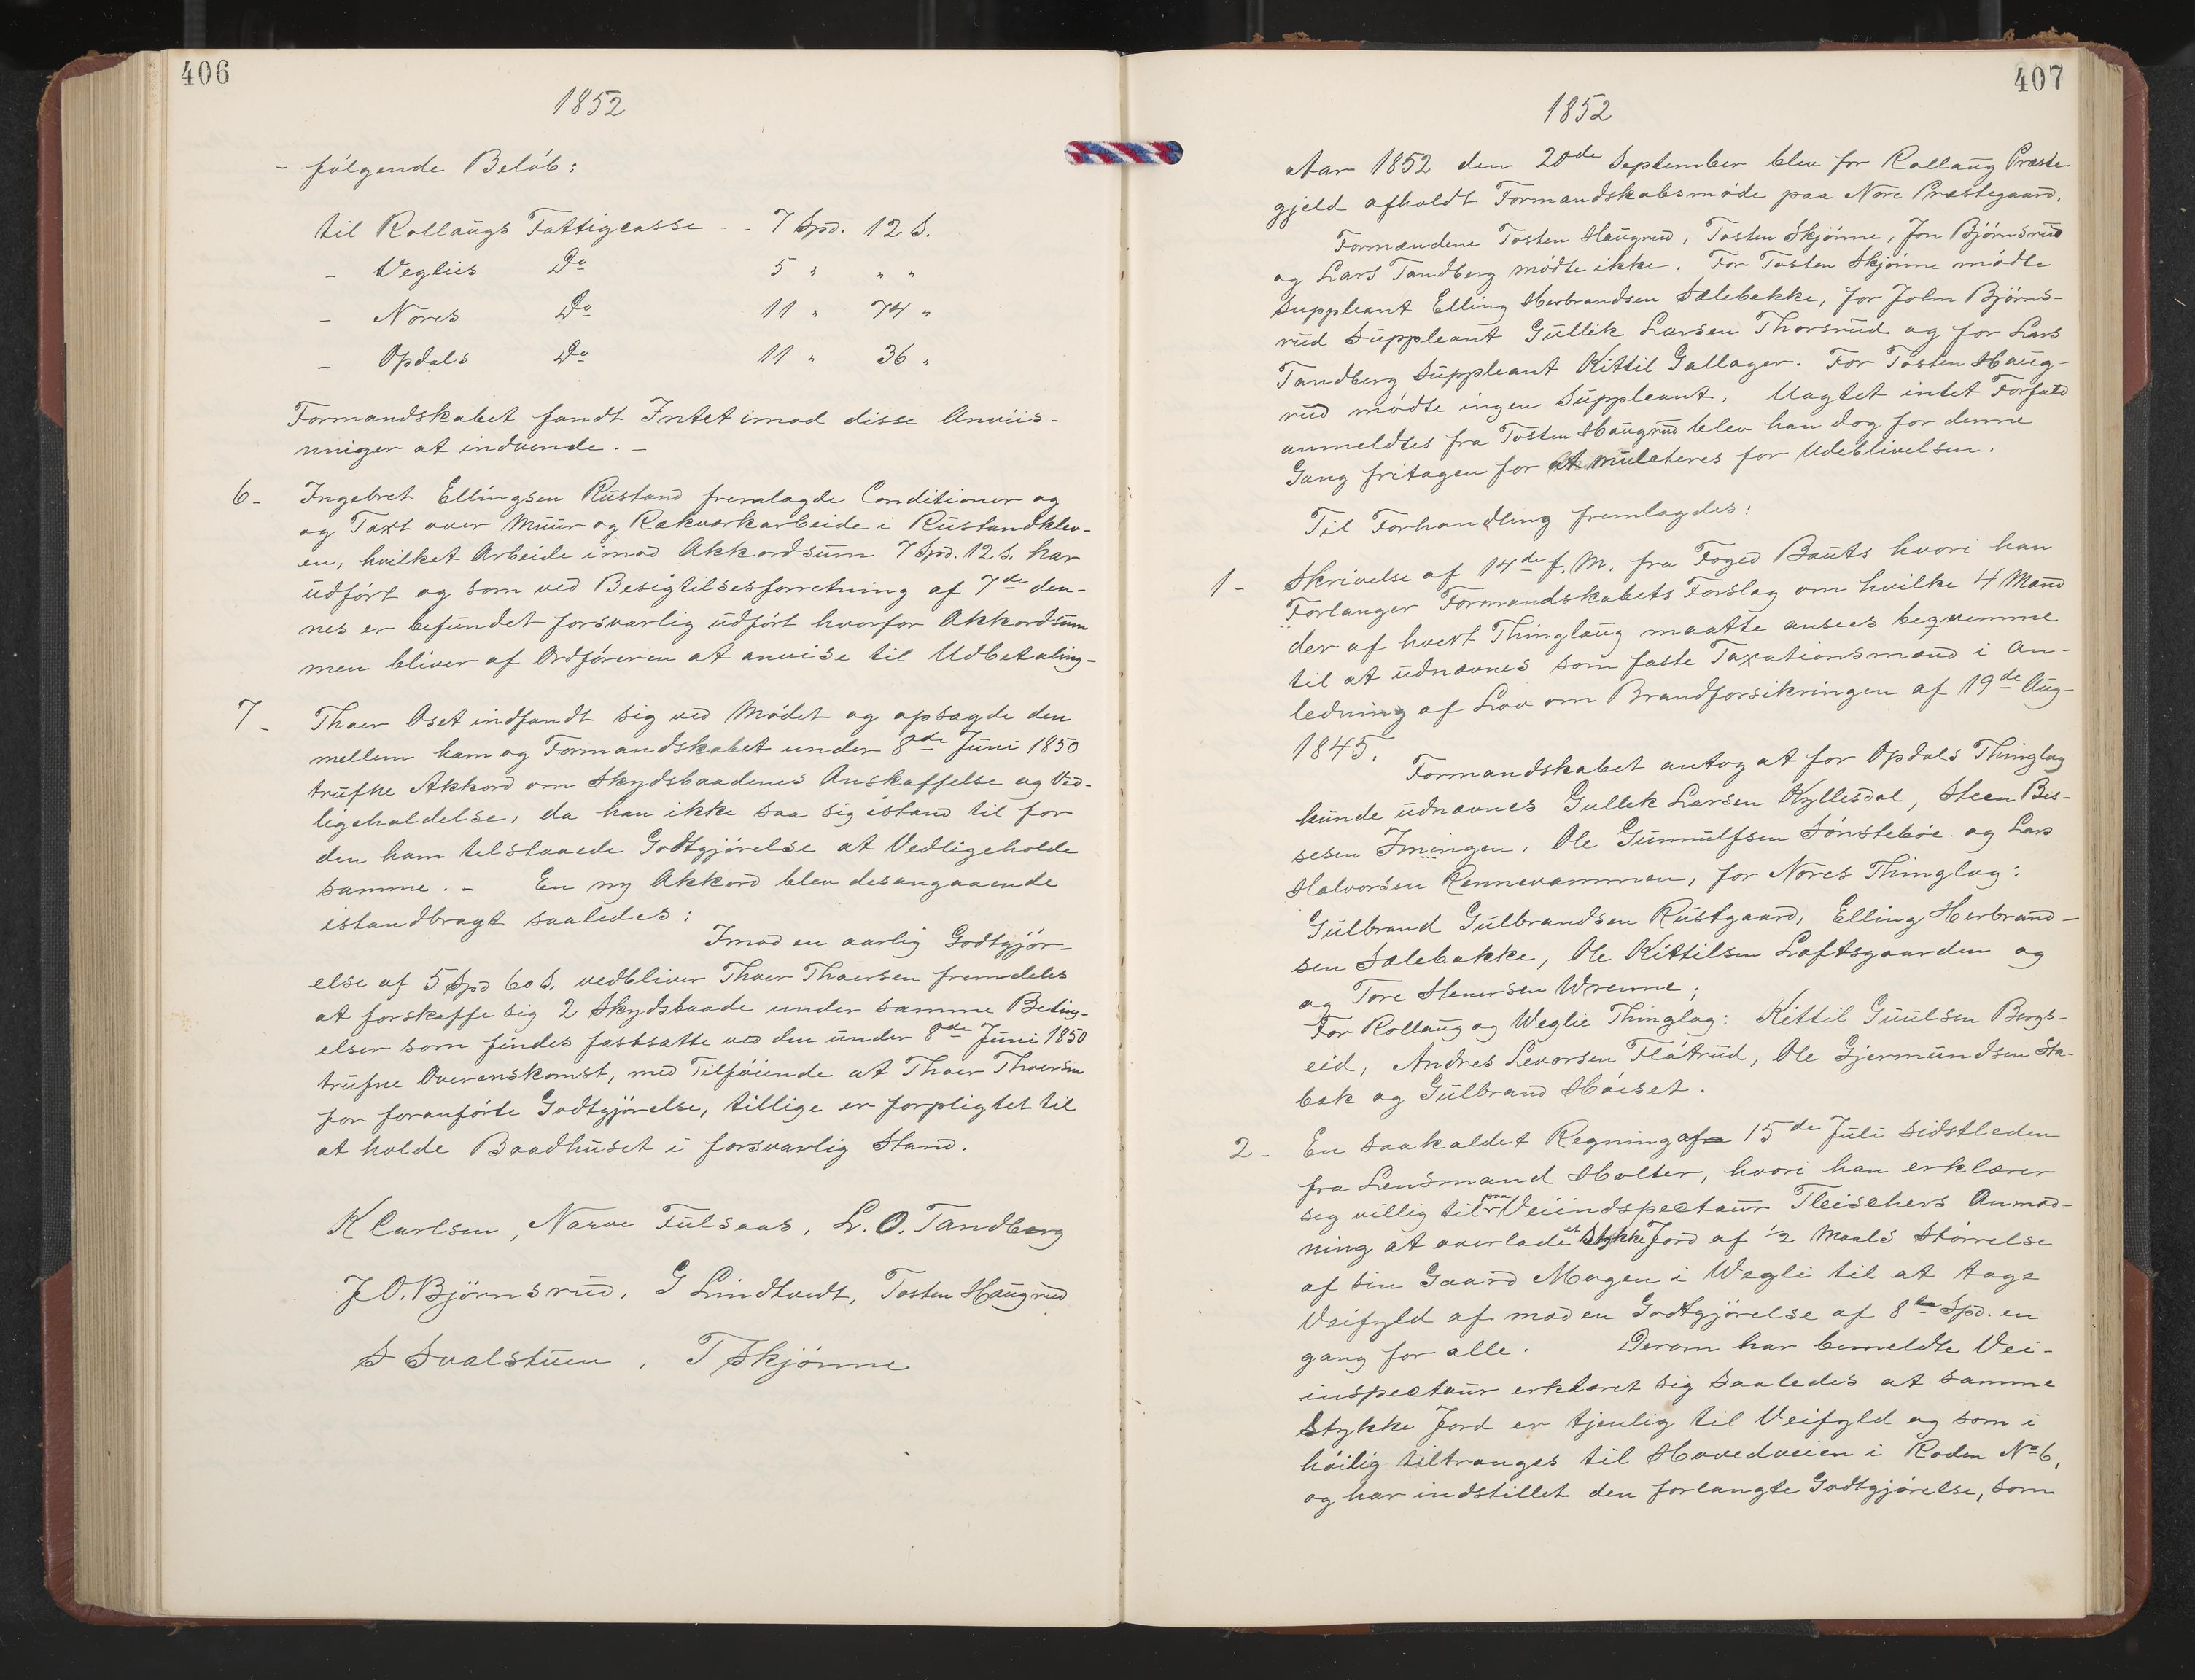 406
1852
- følgende Beløb:
til Rollaugs Fattigcasse - - 7 Spd. 12 S.
- Veglies Do 5 " " "
- Nores Do 11 " 74 "
- Opdals Do 11 " 36 "
Formandskabet fandt Intet imod disse Anviis-
ninger at indvende. -
6- Ingebret Ellingsen Rustand fremlagde Conditioner og
og Taxt over Muur og Rækværkarbeide i Rustandklev-
en, hvilket Arbeide imod Akkordsum 7 Spd. 12 S. har
udført og som ved Besigtilsesforretning af 7de den-
nes er befundet forsvarlig udført hvorfor Akkordsum
men bliver af Ordføreren at anvise til Udbetaling-
7- Thoer Aset indfandt sig ved Mødet og opsagde den
mellem ham og Formandskabet under 8de Juni 1850
trufne Akkord om Skydsbaadenes Anskaffelse og Ved-
ligeholdelse, da han ikke saa sig istand til for
den ham tilstaaede Godtgjørelse at Vedligeholde
samme. - En ny Akkord blev desangaaende
istandbragt saaledes:
Imod en aarlig Godtgjør-
else af 5 Spd 60 S. vedbliver Thoer Thoersen fremdeles
at forskaffe sig 2 Skydsbaade under samme Beting-
elser som findes fastsatte ved den under 8de Juni 1850
trufne Overenskomst, med Tilføiende at Thoer Thoersen
for foranførte Godtgjørelse, tillige er forpligtet til
at holde Baadhuset i forsvarlig Stand.
K Carlsen, Narve Fulsaas, L. O. Tandberg
J O. Bjørnsrud, G Lindtvedt, Tosten Haugrud
S Svalstuen, T Skjønne
407
1852
Aar 1852 den 20de September blev for Rollaug Præste
gjeld afholdt Formandskabsmøde paa Nore Præstegaard.
Formændene Tosten Haugrud, Tosten Skjønne, Jon Bjørnsrud
og Lars Tandberg mødte ikke. For Tosten Skjønne mødte
Suppleant Elling Herbrandsen Sælebakke, for John Bjørns-
rud Suppleant Gullik Larsen Thorsrud og for Lars
Tandberg Suppleant Kittil Gallager. For Tosten Haug-
rud mødte ingen Suppleant. Uagtet intet Forfald
anmeldtes fra Tosten Haugrud blev han dog for denne
Gang fritagen for at mulcteres for Udeblivelsen.
Til Forhandling fremlagdes:
1- Skrivelse af 14de f. M. fra Foged Bauts hvori han
Forlanger Formandskabets Forslag om hvilke 4 Mænd
der af hvert Thinglaug maatte ansees beqvemme
til at udnævnes som faste Taxationsmænd i An-
ledning af Lov om Brandforsikringen af 19de Aug-
1845.
Formandskabet antog at for Opdals Thinglag
kunde udnævnes Gullek Larsen Kyllesdal, Steen Bes-
sesen Imingen, Ole Gunnulfsen Sønstebøe og Lars
Halvorsen Rennevammen, for Nores Thinglag:
Gulbrand Gulbrandsen Rustgaard, Elling Herbrand-
sen Sælebakke, Ole Kittilsen Loftsgaarden og
og Tore Stenersen Wrenne;
For Rollaug og Weglie Thinglag: Kittil Guulsen Bergs-
eid, Andres Levorsen Fløtrud, Ole Gjermundsen Sta-
bæk og Gulbrand Høiset.
2- En saakaldet Regning af 15de Juli sidstleden
fra Lensmand Holter, hvori han erklærer
sig villig til paa Veiindspectaur Fleischers Anmod-
ning at overlade et Stykke Jord af 1/2 Maals Størrelse
af sin Gaard Mogen i Wegli til at tage
Veifyld af mod en Godtgjørelse af 8 Spd. en
gang for alle. Derom har bemeldte Vei-
inspectaur erklæret sig saaledes at samme
Stykke Jord er tjenlig til Veifyld og som i
høilig tiltrænges til Hovedveien i Roden No 6,
og har indstillet den forlangte Godtgjørelse, som